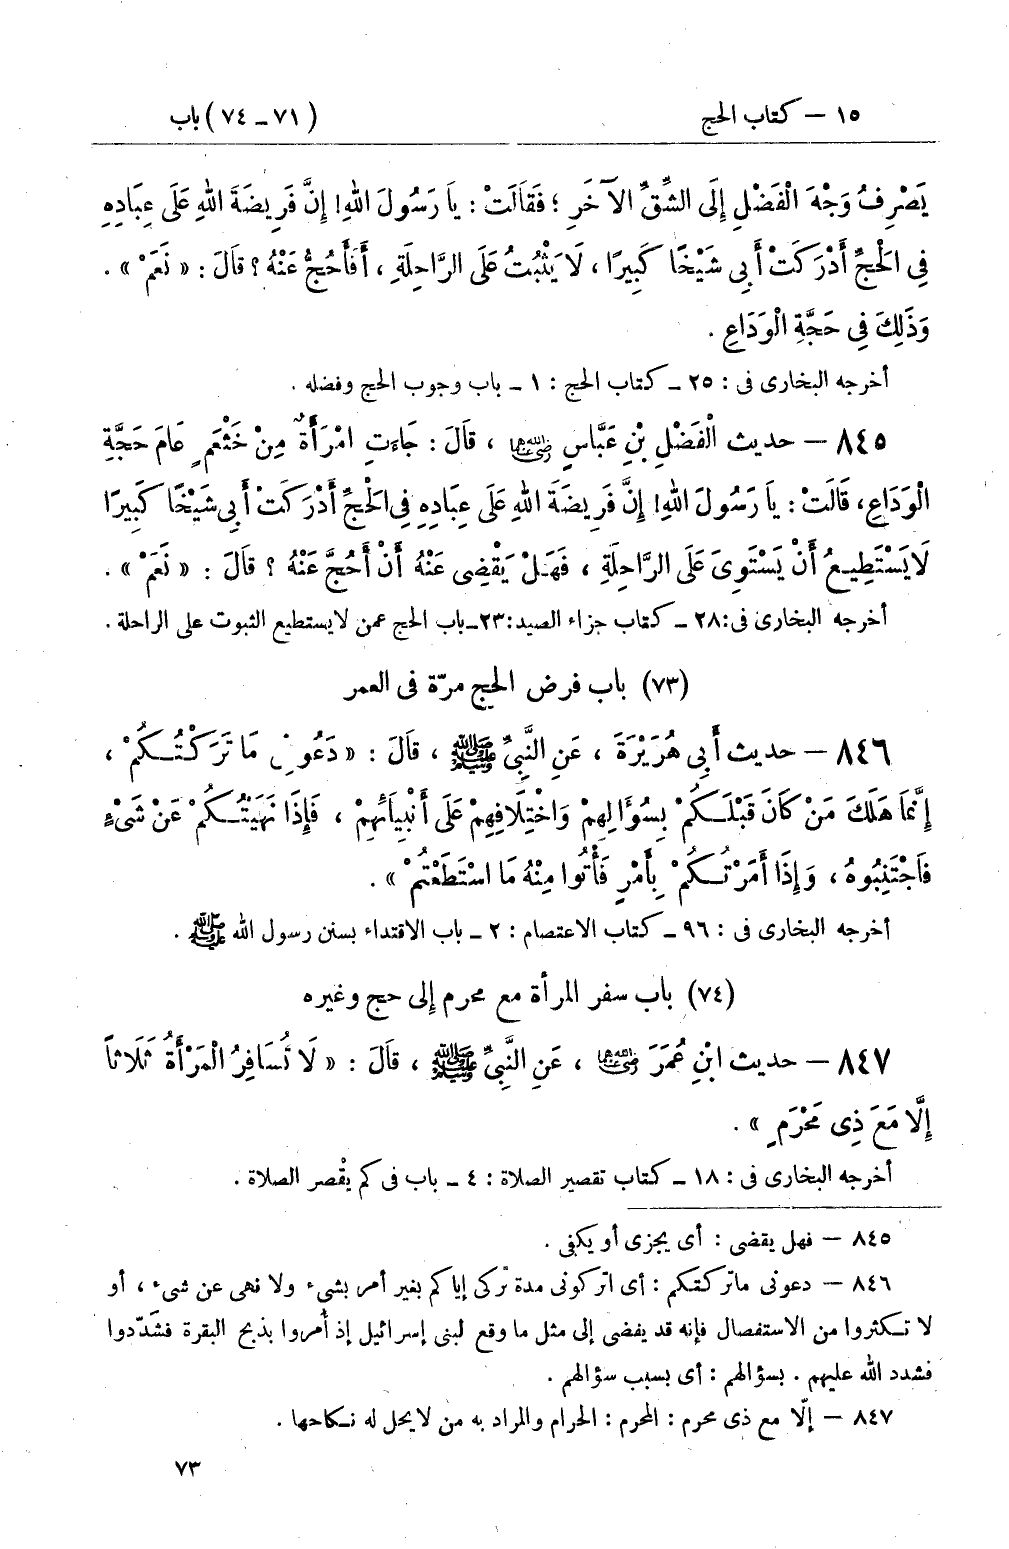 ١٥ – كتاب الحج
(٧١ – ٧٤) باب
يَصْرِفُ وَجْهَ الْفَضْلِ إِلَى الشِّقِّ الآخَرِ ؛ فَقَالَتْ : يَا رَسُولَ اللهِ! إِنَّ فَرِيضَةَ اللهِ عَلَى عِبَادِهِ
فِى الحَجِّ أَدْرَكَتْ أَبِى شَيْخًا كَبِيرًا ، لَا يَثْبُتُ عَلَى الرَّاحِلَةِ ، أَفَأَحُجُّ عَنْهُ ؟ قَالَ : « نَعَمْ » .
وَذَلِكَ فِى حَجَّةِ الْوَدَاعِ .
أخرجه البخارى فى : ٢٥ – كتاب الحج : ١ – باب وجوب الحج وفضله .
٨٤٥ – حديث الْفَضْلِ بْنِ عَبَّاسٍ رضي الله عنهما ، قَالَ : جَاءَتِ امْرَأَةٌ مِنْ خَثْعَمٍ عَامَ حَجَّةِ
الْوَدَاعِ، قَالَتْ : يَا رَسُولَ اللهِ! إِنَّ فَرِيضَةَ اللهِ عَلَى عِبَادِهِ فِى الحَجِّ أَدْرَكَتْ أَبِى شَيْخًا كَبِيرًا
لَا يَسْتَطِيعُ أَنْ يَسْتَوِىَ عَلَى الرَّاحِلَةِ ، فَهَلْ يَقْضِى عَنْهُ أَنْ أَحُجَّ عَنْهُ ؟ قَالَ : « نَعَمْ » .
أخرجه البخارى فى: ٢٨ – كتاب جزاء الصيد: ٢٣– باب الحج عمن لا يستطيع الثبوت على الراحلة .
(٧٣) باب فرض الحج مرّة فى العمر
٨٤٦ – حديث أَبِى هُرَيْرَةَ ، عَنِ النَّبِىِّ ﷺ ، قَالَ : « دَعُونِى مَا تَرَكْتُكُمْ ،
إِنَّمَا هَلَكَ مَنْ كَانَ قَبْلَكُمْ بِسُؤَالِهِمْ وَاخْتِلَافِهِمْ عَلَى أَنْبِيَائِهِمْ ، فَإِذَا نَهَيْتُكُمْ عَنْ شَىْءٍ
فَاجْتَنِبُوهُ ، وَإِذَا أَمَرْتُكُمْ بِأَمْرٍ فَأْتُوا مِنْهُ مَا اسْتَطَعْتُمْ » .
أخرجه البخارى فى : ٩٦ – كتاب الاعتصام : ٢ – باب الاقتداء بسنن رسول الله ﷺ .
(٧٤) باب سفر المرأة مع محرم إلى حج وغيره
٨٤٧ – حديث ابْنِ عُمَرَ رضي الله عنهما ، عَنِ النَّبِىِّ ﷺ ، قَالَ : « لَا تُسَافِرُ الْمَرْأَةُ ثَلَاثًا
إِلَّا مَعَ ذِى مَحْرَمٍ » .
أخرجه البخارى فى : ١٨ – كتاب تقصير الصلاة : ٤ – باب فى كم يقْصر الصلاة .
٨٤٥ – فهل يقضى : أى يجزى أو يكفى .
٨٤٦ – دعونى ماتركتكم : أى اتركونى مدة تركى إياكم بغير أمر بشىء ولا نهى عن شىء ، أو
لا تكثروا من الاستفصال فإنه قد يفضى إلى مثل ما وقع لبنى إسرائيل إذ أُمروا بذبح البقرة فشدّدوا
فشدد الله عليهم . بسؤالهم : أى بسبب سؤالهم .
٨٤٧ – إلّا مع ذى محرم : المحرم : الحرام والمراد به من لا يحل له نكاحها .
٧٣